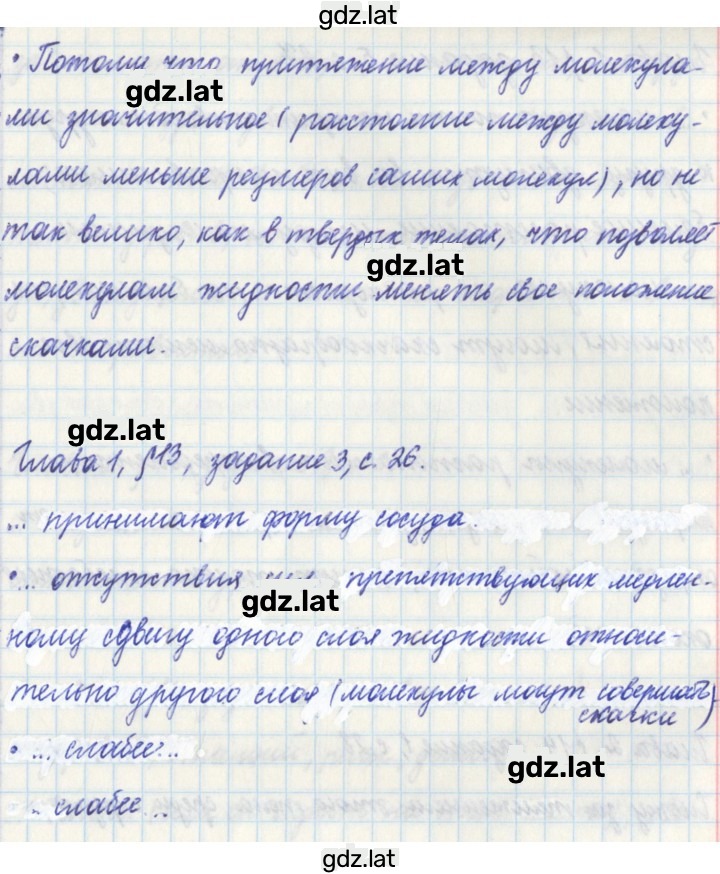 gdz.lat
• Потому что притяжение между молекула-
gdz.lat
ми значительное (расстояние между молеку-
лами меньше размеров самих молекул), но не
так велико, как в твердых телах, что позволяет
gdz.lat
молекулам жидкости менять свое положение
скачками.
gdz.lat
Глава 1, §13, задание 3, с. 26.
... принимают форму сосуда.
• ... отсутствия сил, препятствующих медлен-
gdz.lat
ному сдвигу одного слоя жидкости относи-
тельно другого слоя (молекулы могут совершать
скачки)
• ... слабее ...
gdz.lat
... слабее ...
gdz.lat